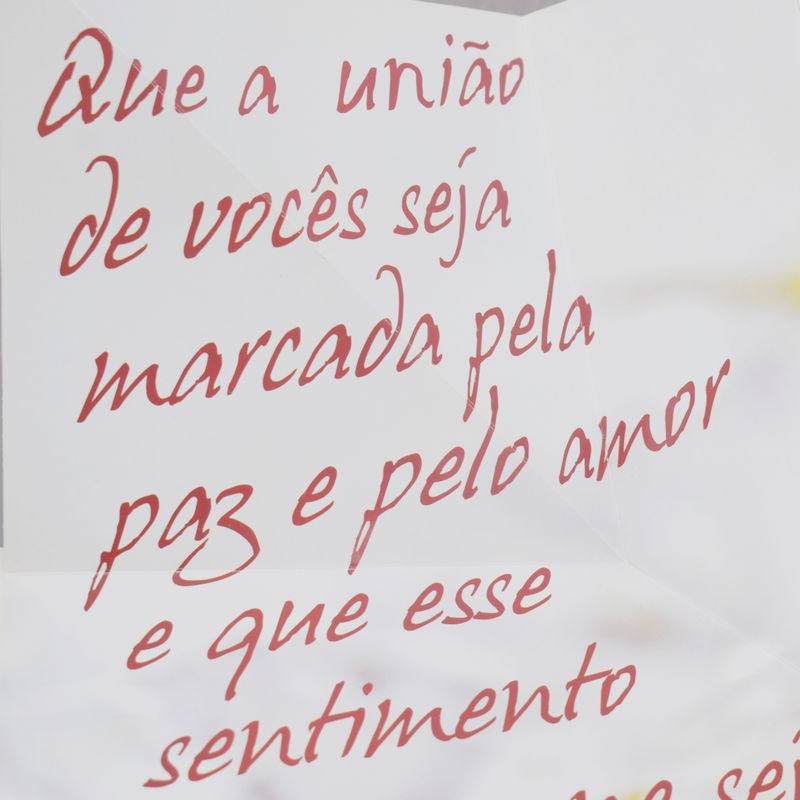 Que a união
de vocês seja
marcada pela
paz e pelo amor
e que esse
sentimento